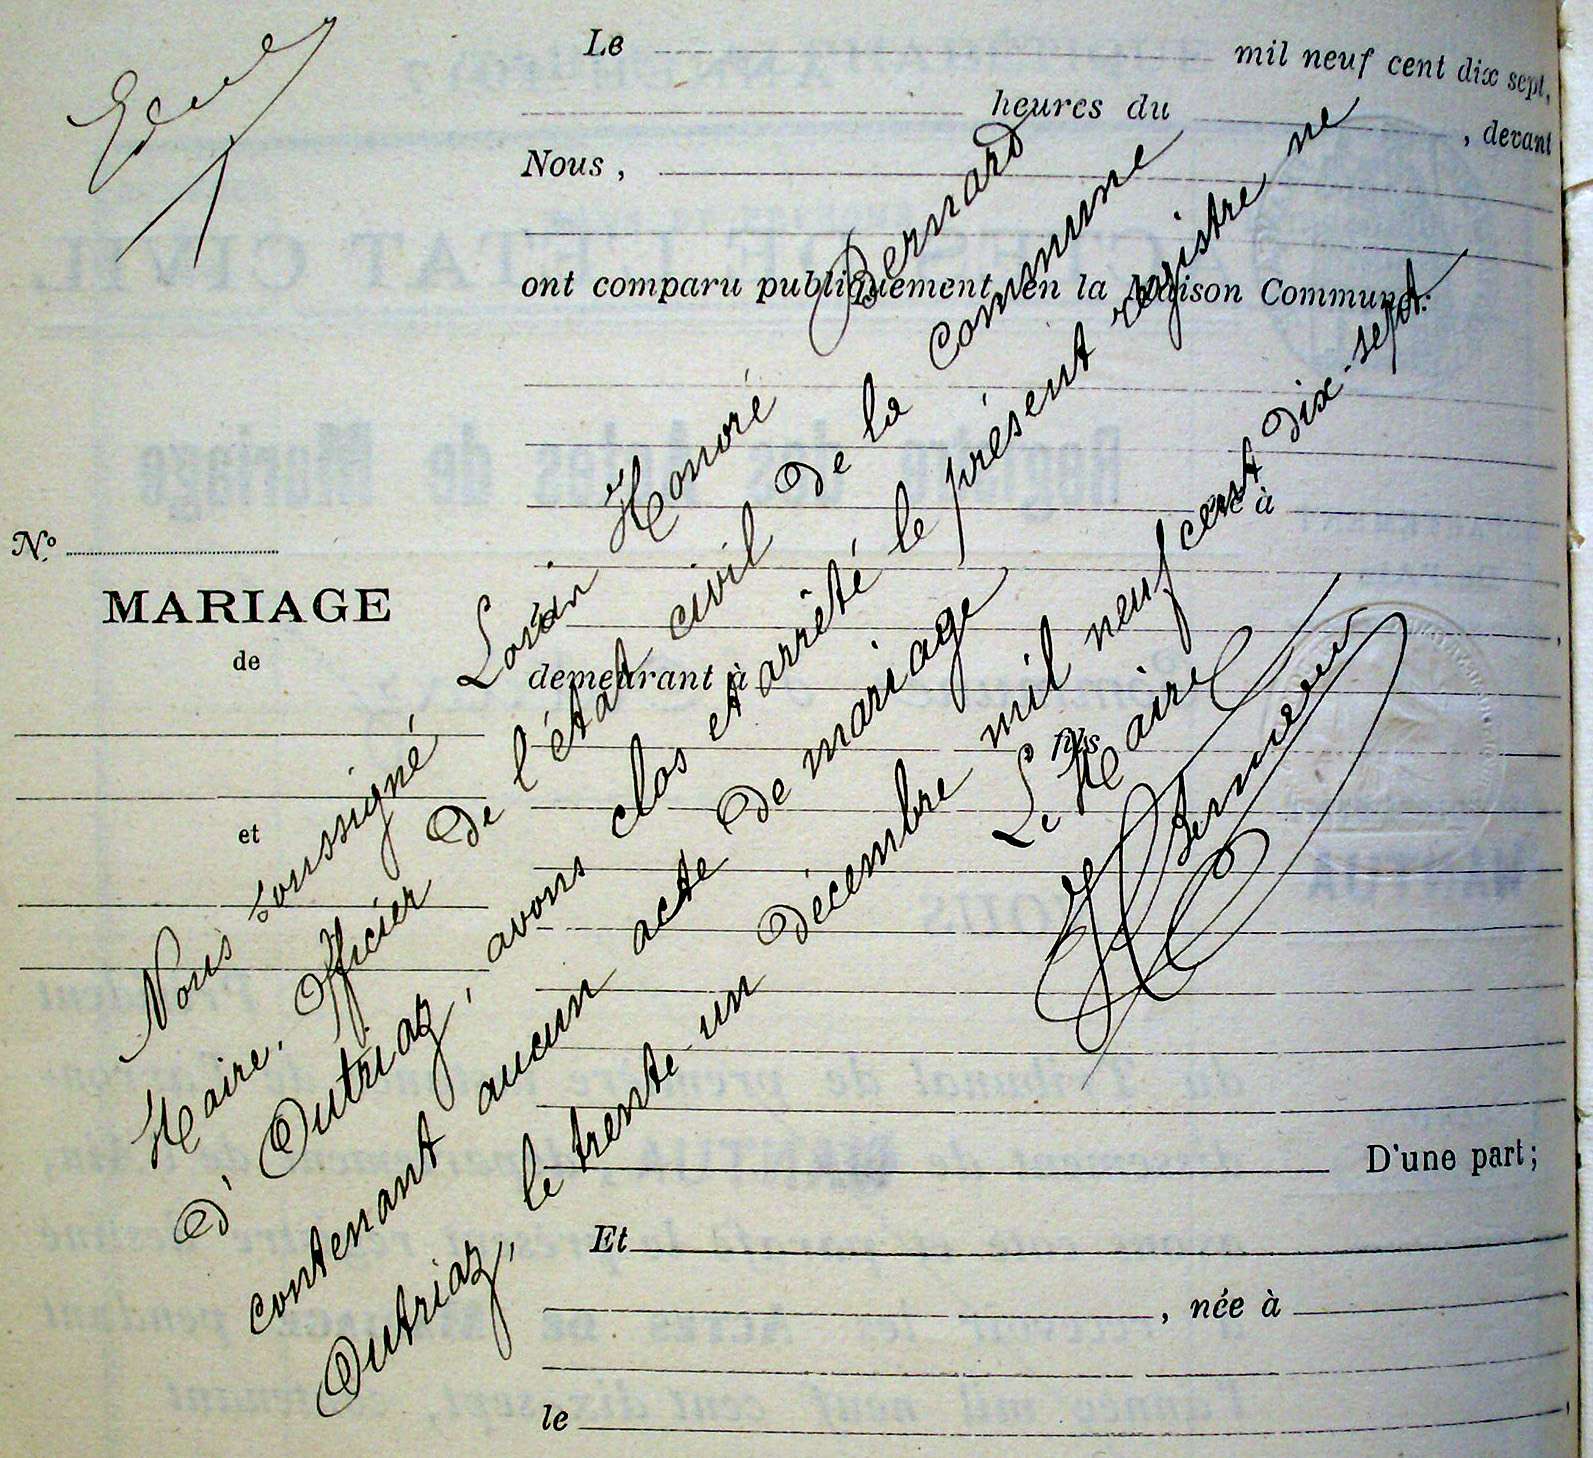 Le mil neuf cent dix sept,
heures du , devant
Nous ,
ont comparu publiquement en la Maison Commune:
né à
demeurant à
fils
D'une part;
Et
, née à
le
N°
MARIAGE
de
et
Nous soussigné Honoré Bernard
Maire, Officier de l'état civil de la Commune
d'Outriaz, avons clos et arrêté le présent registre ne
contenant aucun acte de mariage
Outriaz, le trente-un décembre mil neuf cent dix-sept.
Le Maire